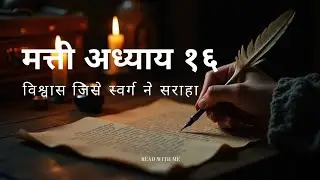 मत्ती अध्याय १६
विश्वास जिसे स्वर्ग ने सराहा
READ WITH ME